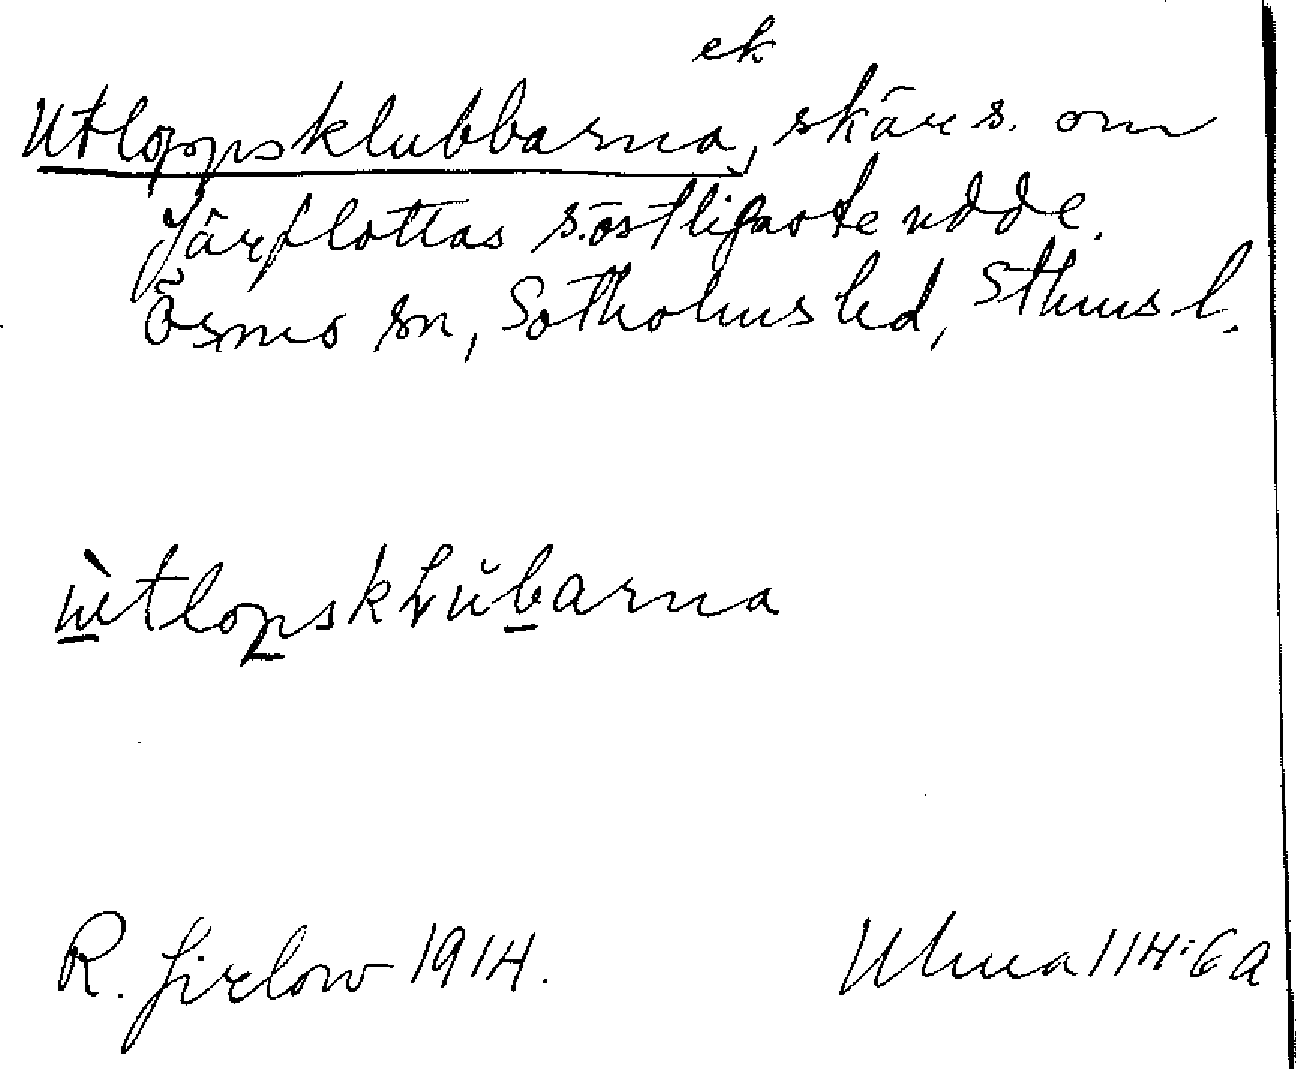 ek
Utloppsklubbarna, skär s. om
Järflottas s.östligaste udde.
Ösmo sn, Sotholms hd, Sthms l.
ùtlopskḷŭbarna
R. Jirlow 1914.
Ulma 114:6a